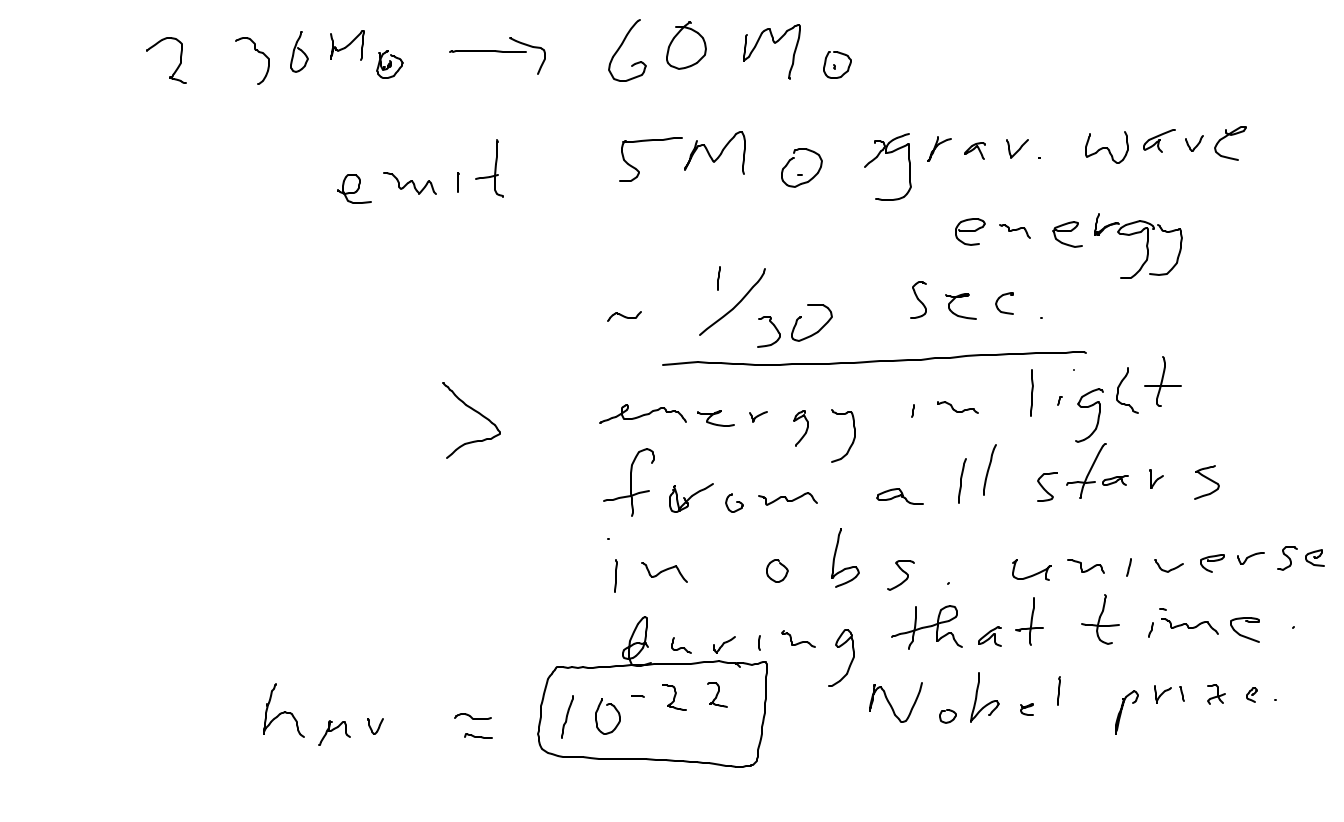 2 36M⊙ → 60 M⊙
emit 5M⊙ grav. wave
energy
~ 1/30 sec.
> energy in light
from all stars
in obs. universe
during that time.
hμν ≈ 10⁻²² Nobel prize.